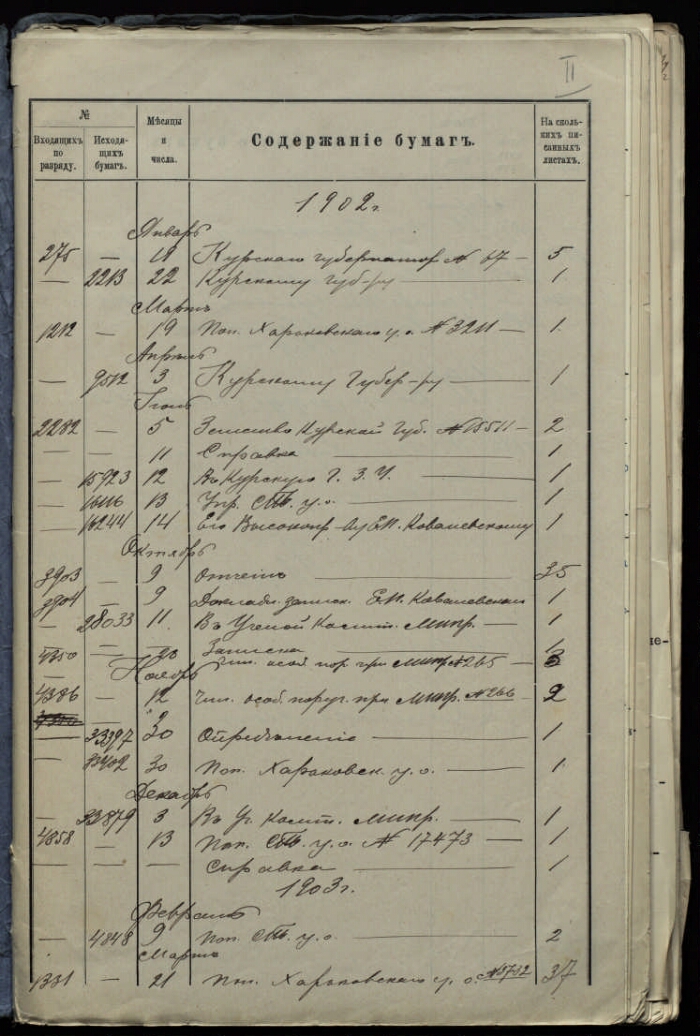 II
№
Входящихъ по разряду.
Исходящихъ бумагъ.
Мѣсяцы и числа.
Содержаніе бумагъ.
На сколькихъ писанныхъ листахъ.
1902 г.
Январь
275 — 18 Курскаго Губернатора № 67 — 5
— 2213 22 Курскому Губ-ру — 1
Мартъ
1212 — 19 Поп. Харьковскаго у. о. № 3211 — 1
Апрѣль
— 9512 3 Курскому Губер-ру — 1
Іюнь
2282 — 5 Земство Курской Губ. № 15511 — 2
— — 11 Справка — 1
— 15923 12 Въ Курскую Г. З. У. — 1
— 16116 13 Упр. СПб. у. о. — 1
— 16244 14 Его Высокопр. Е.П. Ковалевскому 1
Октябрь
3903 — 9 Отчетъ — 35
3904 — 9 Докладн. записк. Е.П. Ковалевскаго 1
— 28033 11 Въ Ученой Комит. Минр. — 1
— — 20 Записка — 1
Ноябрь
4350 Чин. особ. пор. при Минр. № 265 — 3
4386 — 12 Чин. особ. поруч. при Минр. № 266 — 2
— 33397 30 Опредѣленіе — 1
— 33402 30 Поп. Харьковск. у. о. — 1
Декабрь
— 33879 3 Въ Уч. Комит. Минр. — 1
4858 — 13 Поп. СПб. у. о. № 17473 — 1
— — — Справка — 1
1903 г.
Февраль
— 4848 9 Поп. СПб. у. о. — 2
Мартъ
1331 — 21 Поп. Харьковскаго у. о. № 5732 37